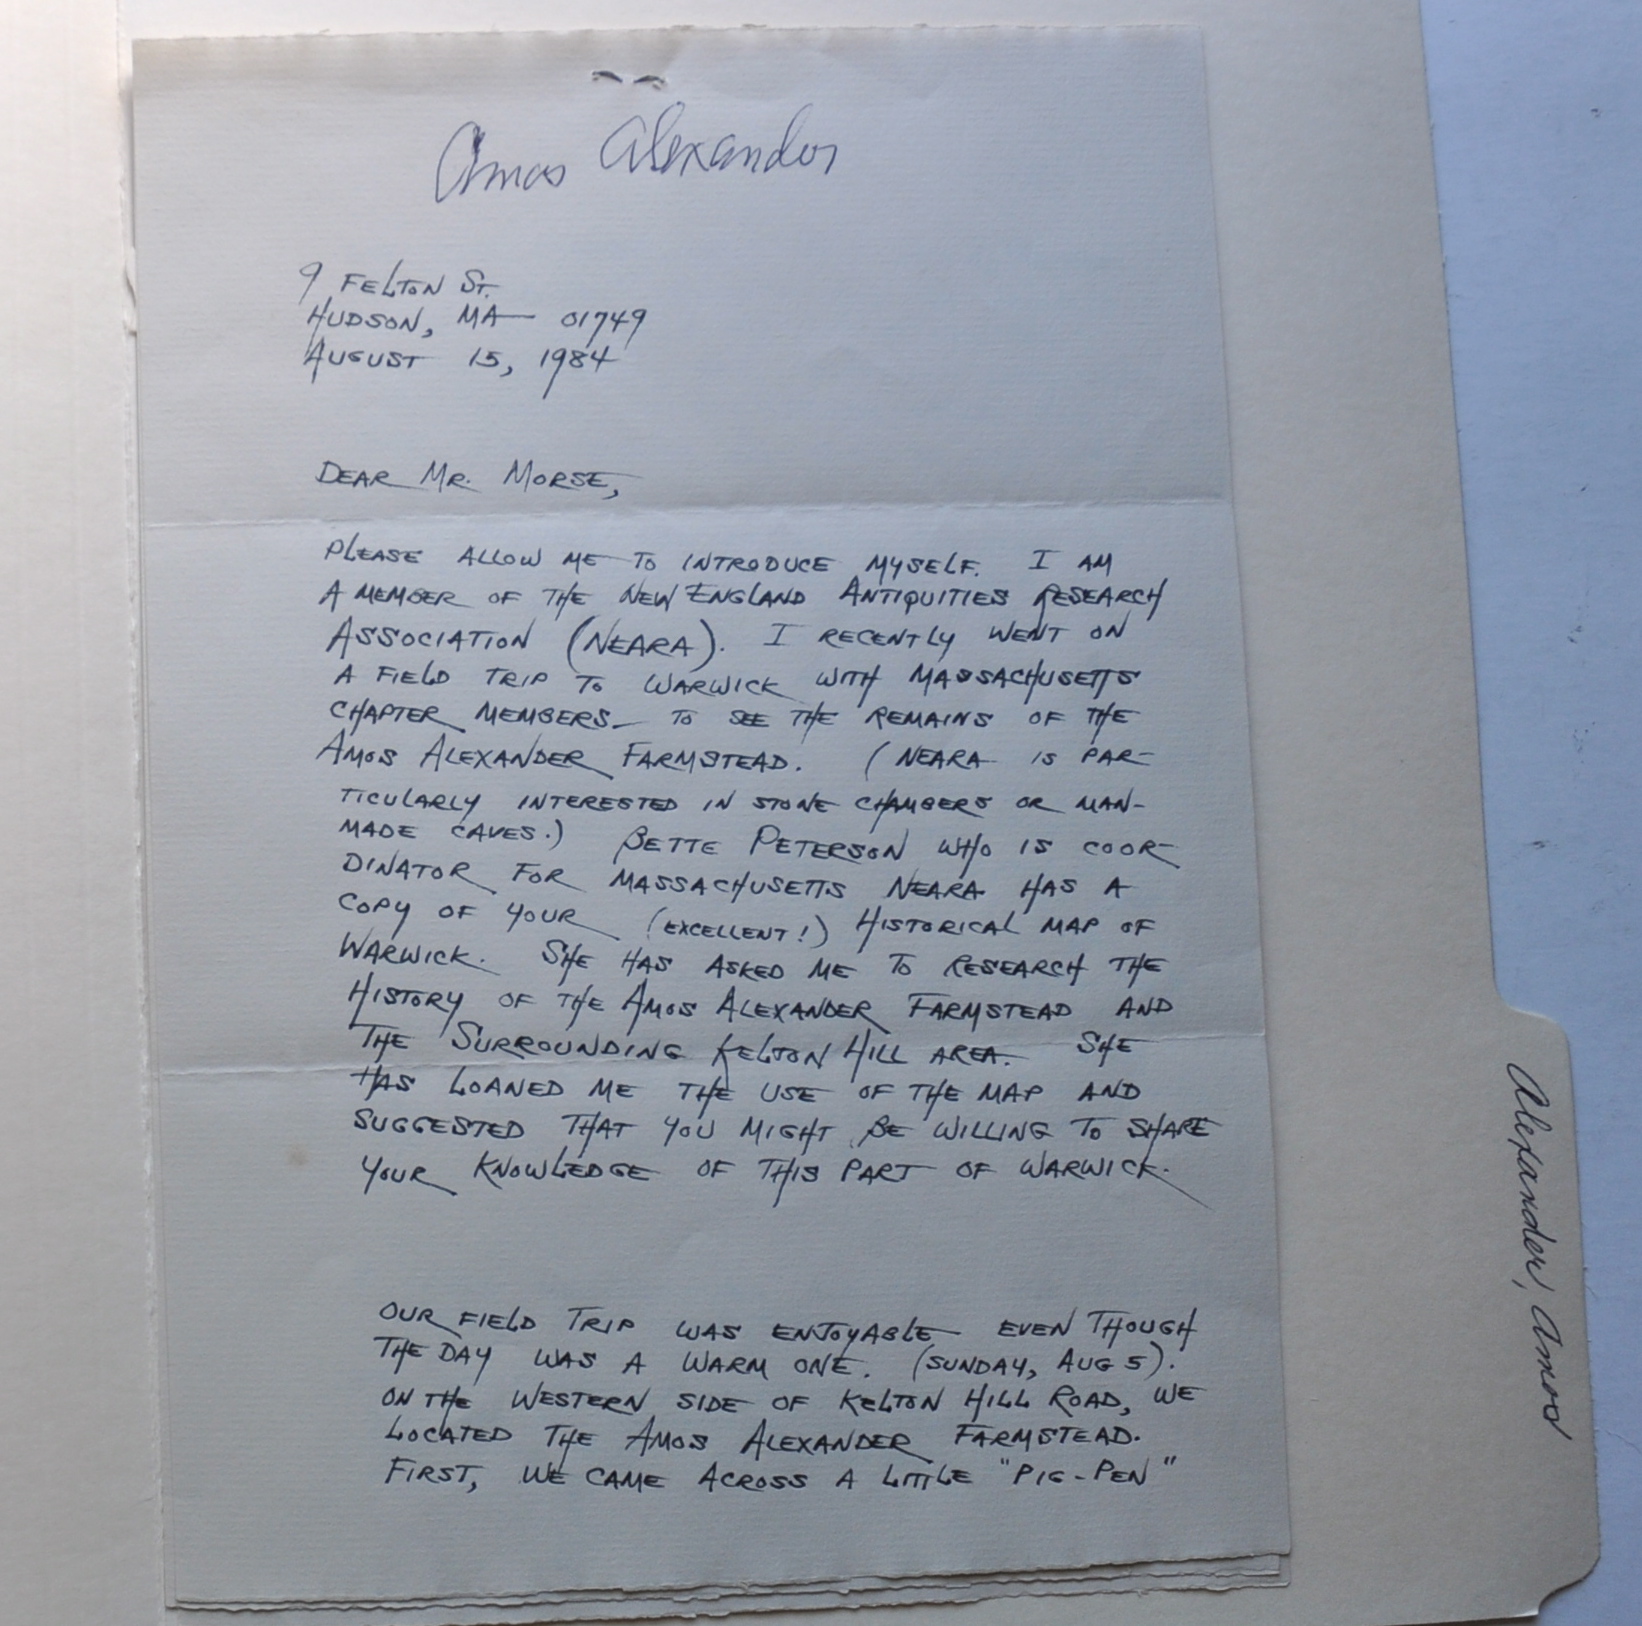 Amos Alexander
9 FELTON ST.
HUDSON, MA 01749
AUGUST 15, 1984
DEAR MR. MORSE,
PLEASE ALLOW ME TO INTRODUCE MYSELF. I AM
A MEMBER OF THE NEW ENGLAND ANTIQUITIES RESEARCH
ASSOCIATION (NEARA). I RECENTLY WENT ON
A FIELD TRIP TO WARWICK WITH MASSACHUSETTS
CHAPTER MEMBERS TO SEE THE REMAINS OF THE
AMOS ALEXANDER FARMSTEAD. (NEARA IS PAR-
TICULARLY INTERESTED IN STONE CHAMBERS OR MAN-
MADE CAVES.) BETTE PETERSON WHO IS COOR-
DINATOR FOR MASSACHUSETTS NEARA HAS A
COPY OF YOUR (EXCELLENT!) HISTORICAL MAP OF
WARWICK. SHE HAS ASKED ME TO RESEARCH THE
HISTORY OF THE AMOS ALEXANDER FARMSTEAD AND
THE SURROUNDING KELTON HILL AREA. SHE
HAS LOANED ME THE USE OF THE MAP AND
SUGGESTED THAT YOU MIGHT BE WILLING TO SHARE
YOUR KNOWLEDGE OF THIS PART OF WARWICK.
OUR FIELD TRIP WAS ENJOYABLE EVEN THOUGH
THE DAY WAS A WARM ONE. (SUNDAY, AUG 5).
ON THE WESTERN SIDE OF KELTON HILL ROAD, WE
LOCATED THE AMOS ALEXANDER FARMSTEAD.
FIRST, WE CAME ACROSS A LITTLE "PIG-PEN"
Alexander, Amos